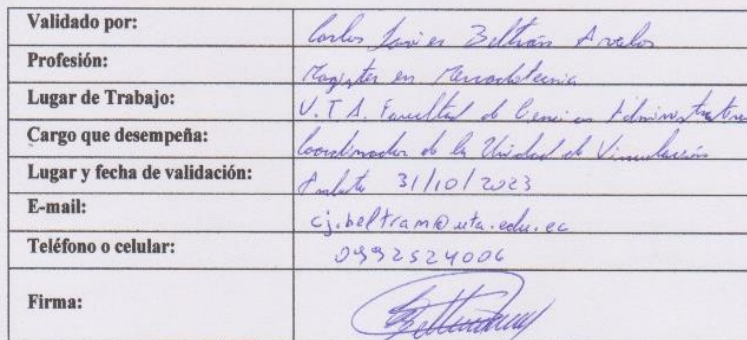 Validado por: Carlos Javier Beltrán Avalos
Profesión: Magister en Mercadotecnia
Lugar de Trabajo: U.T.A. Facultad de Ciencias Administrativas
Cargo que desempeña: Coordinador de la Unidad de Vinculación
Lugar y fecha de validación: Ambato 31/10/2023
E-mail: cj.beltram@uta.edu.ec
Teléfono o celular: 0992524006
Firma: